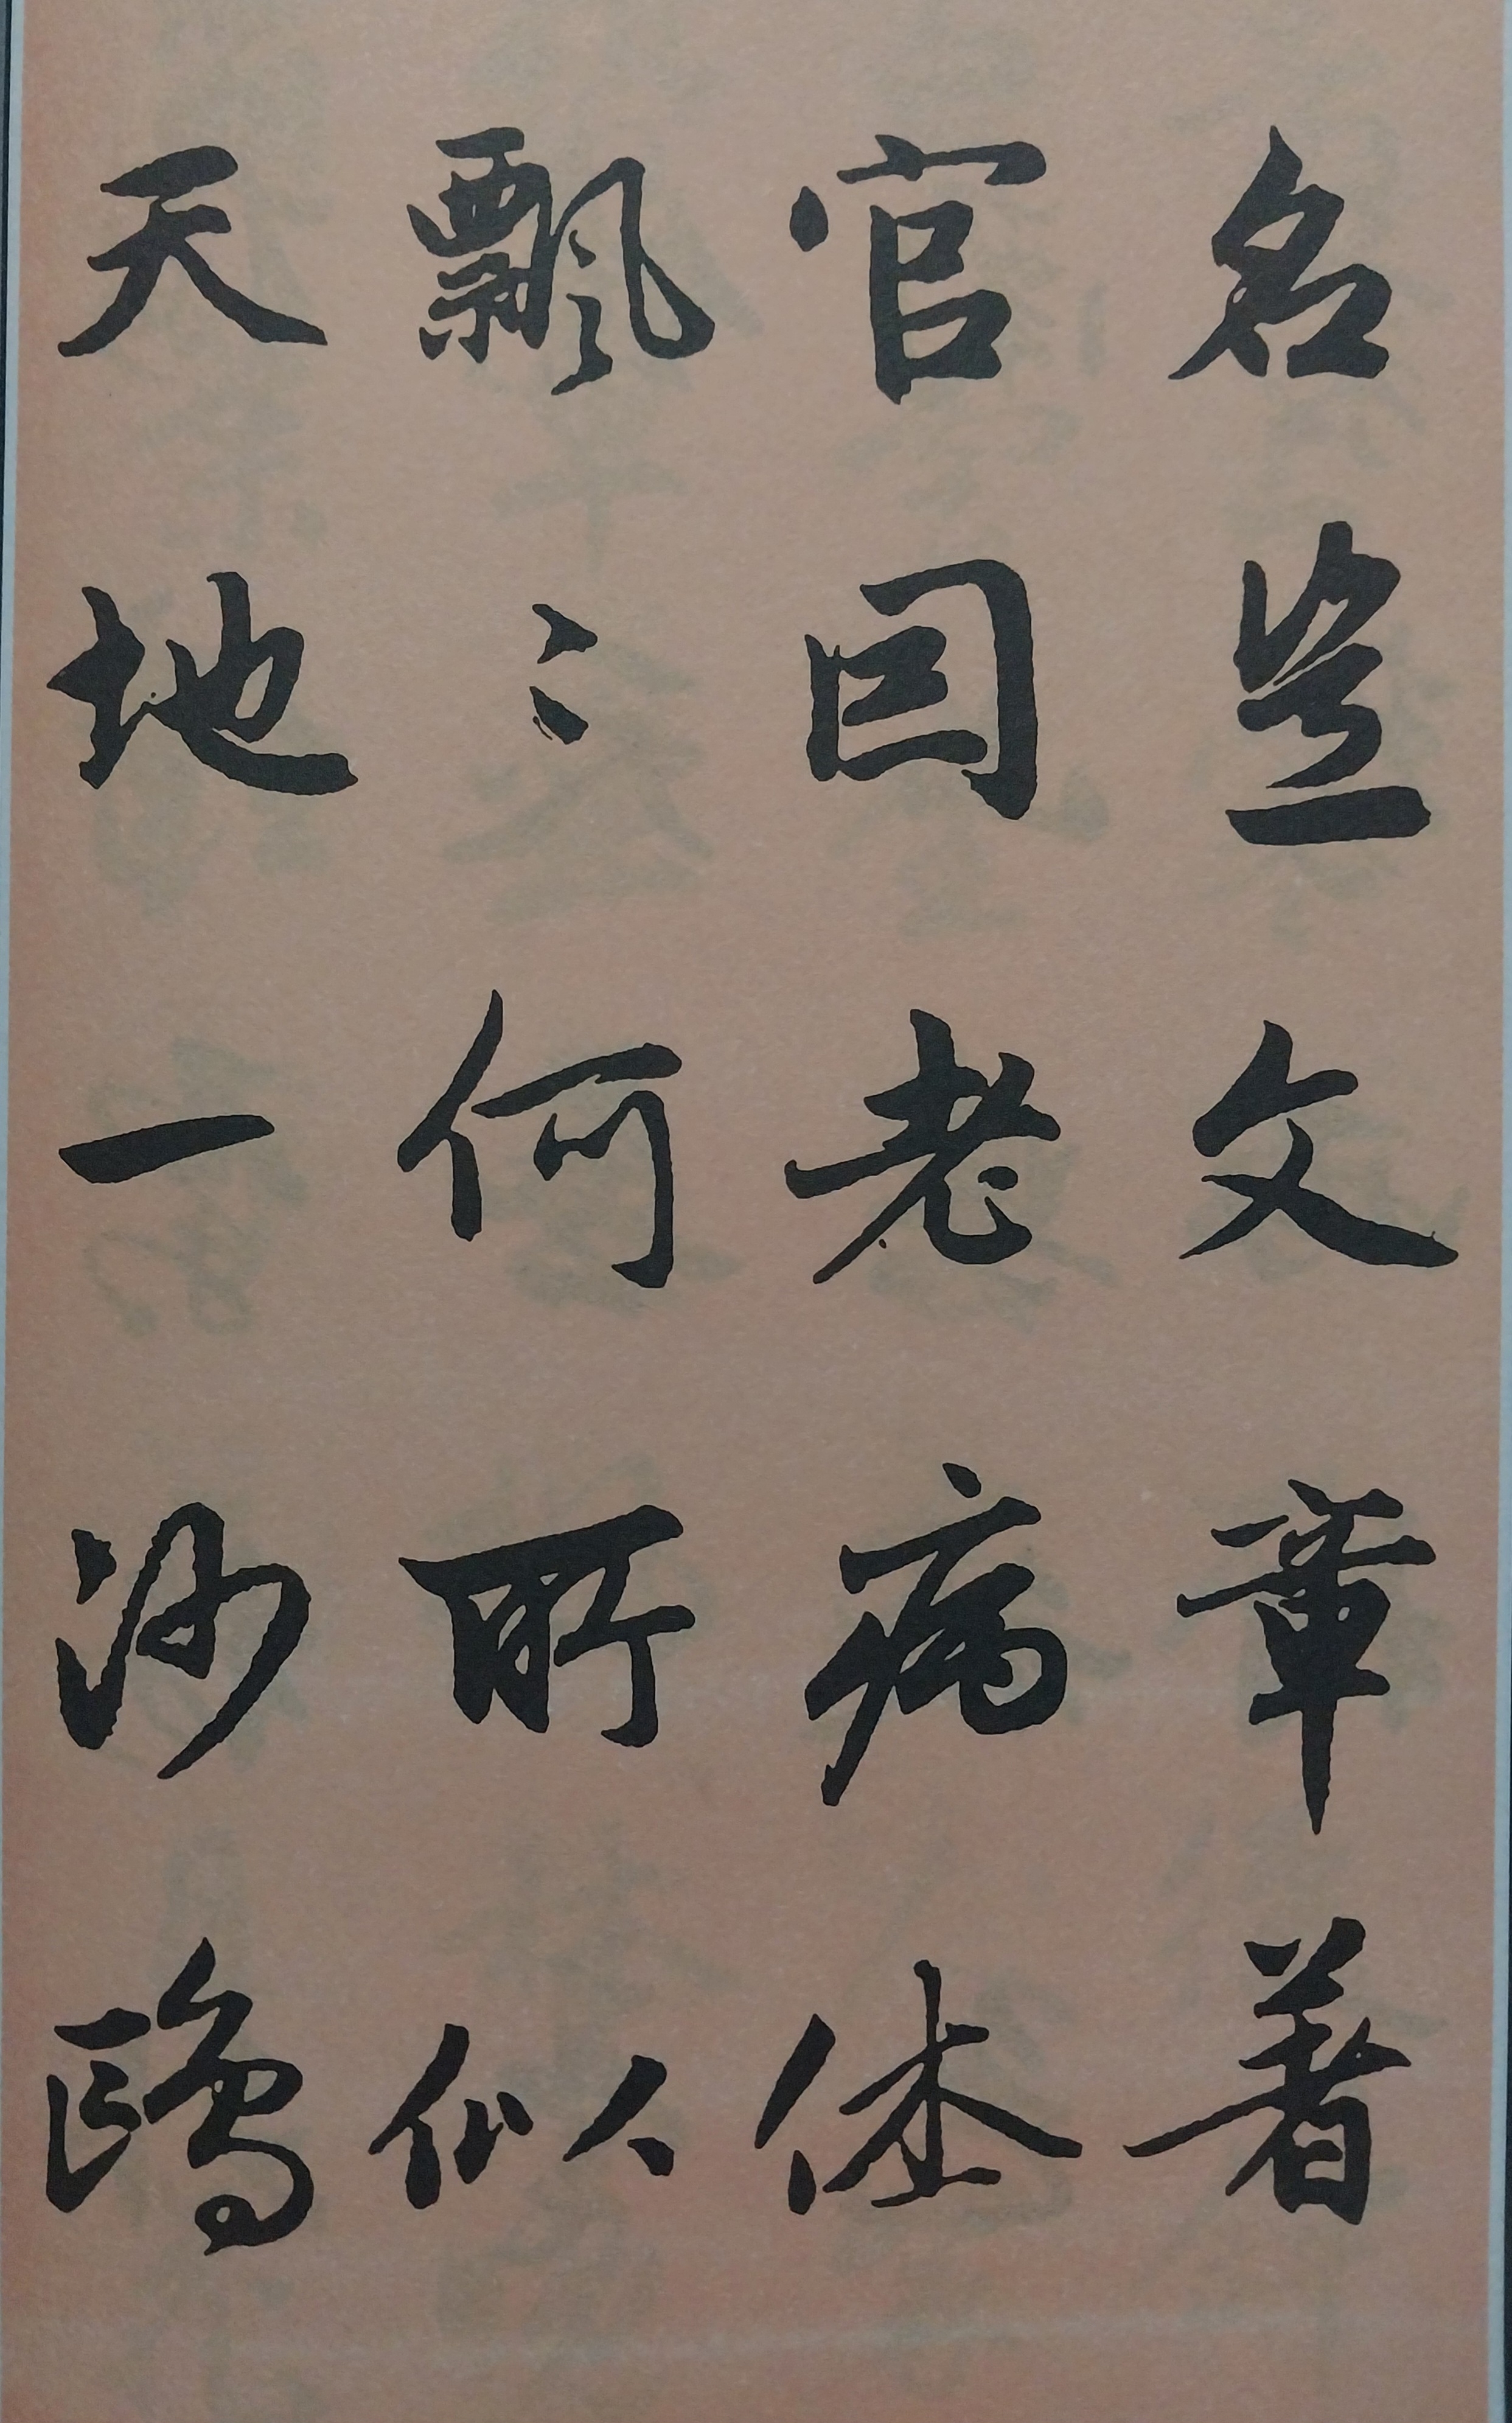 名岂文章著
官因老病休
飘〻何所似
天地一沙鸥